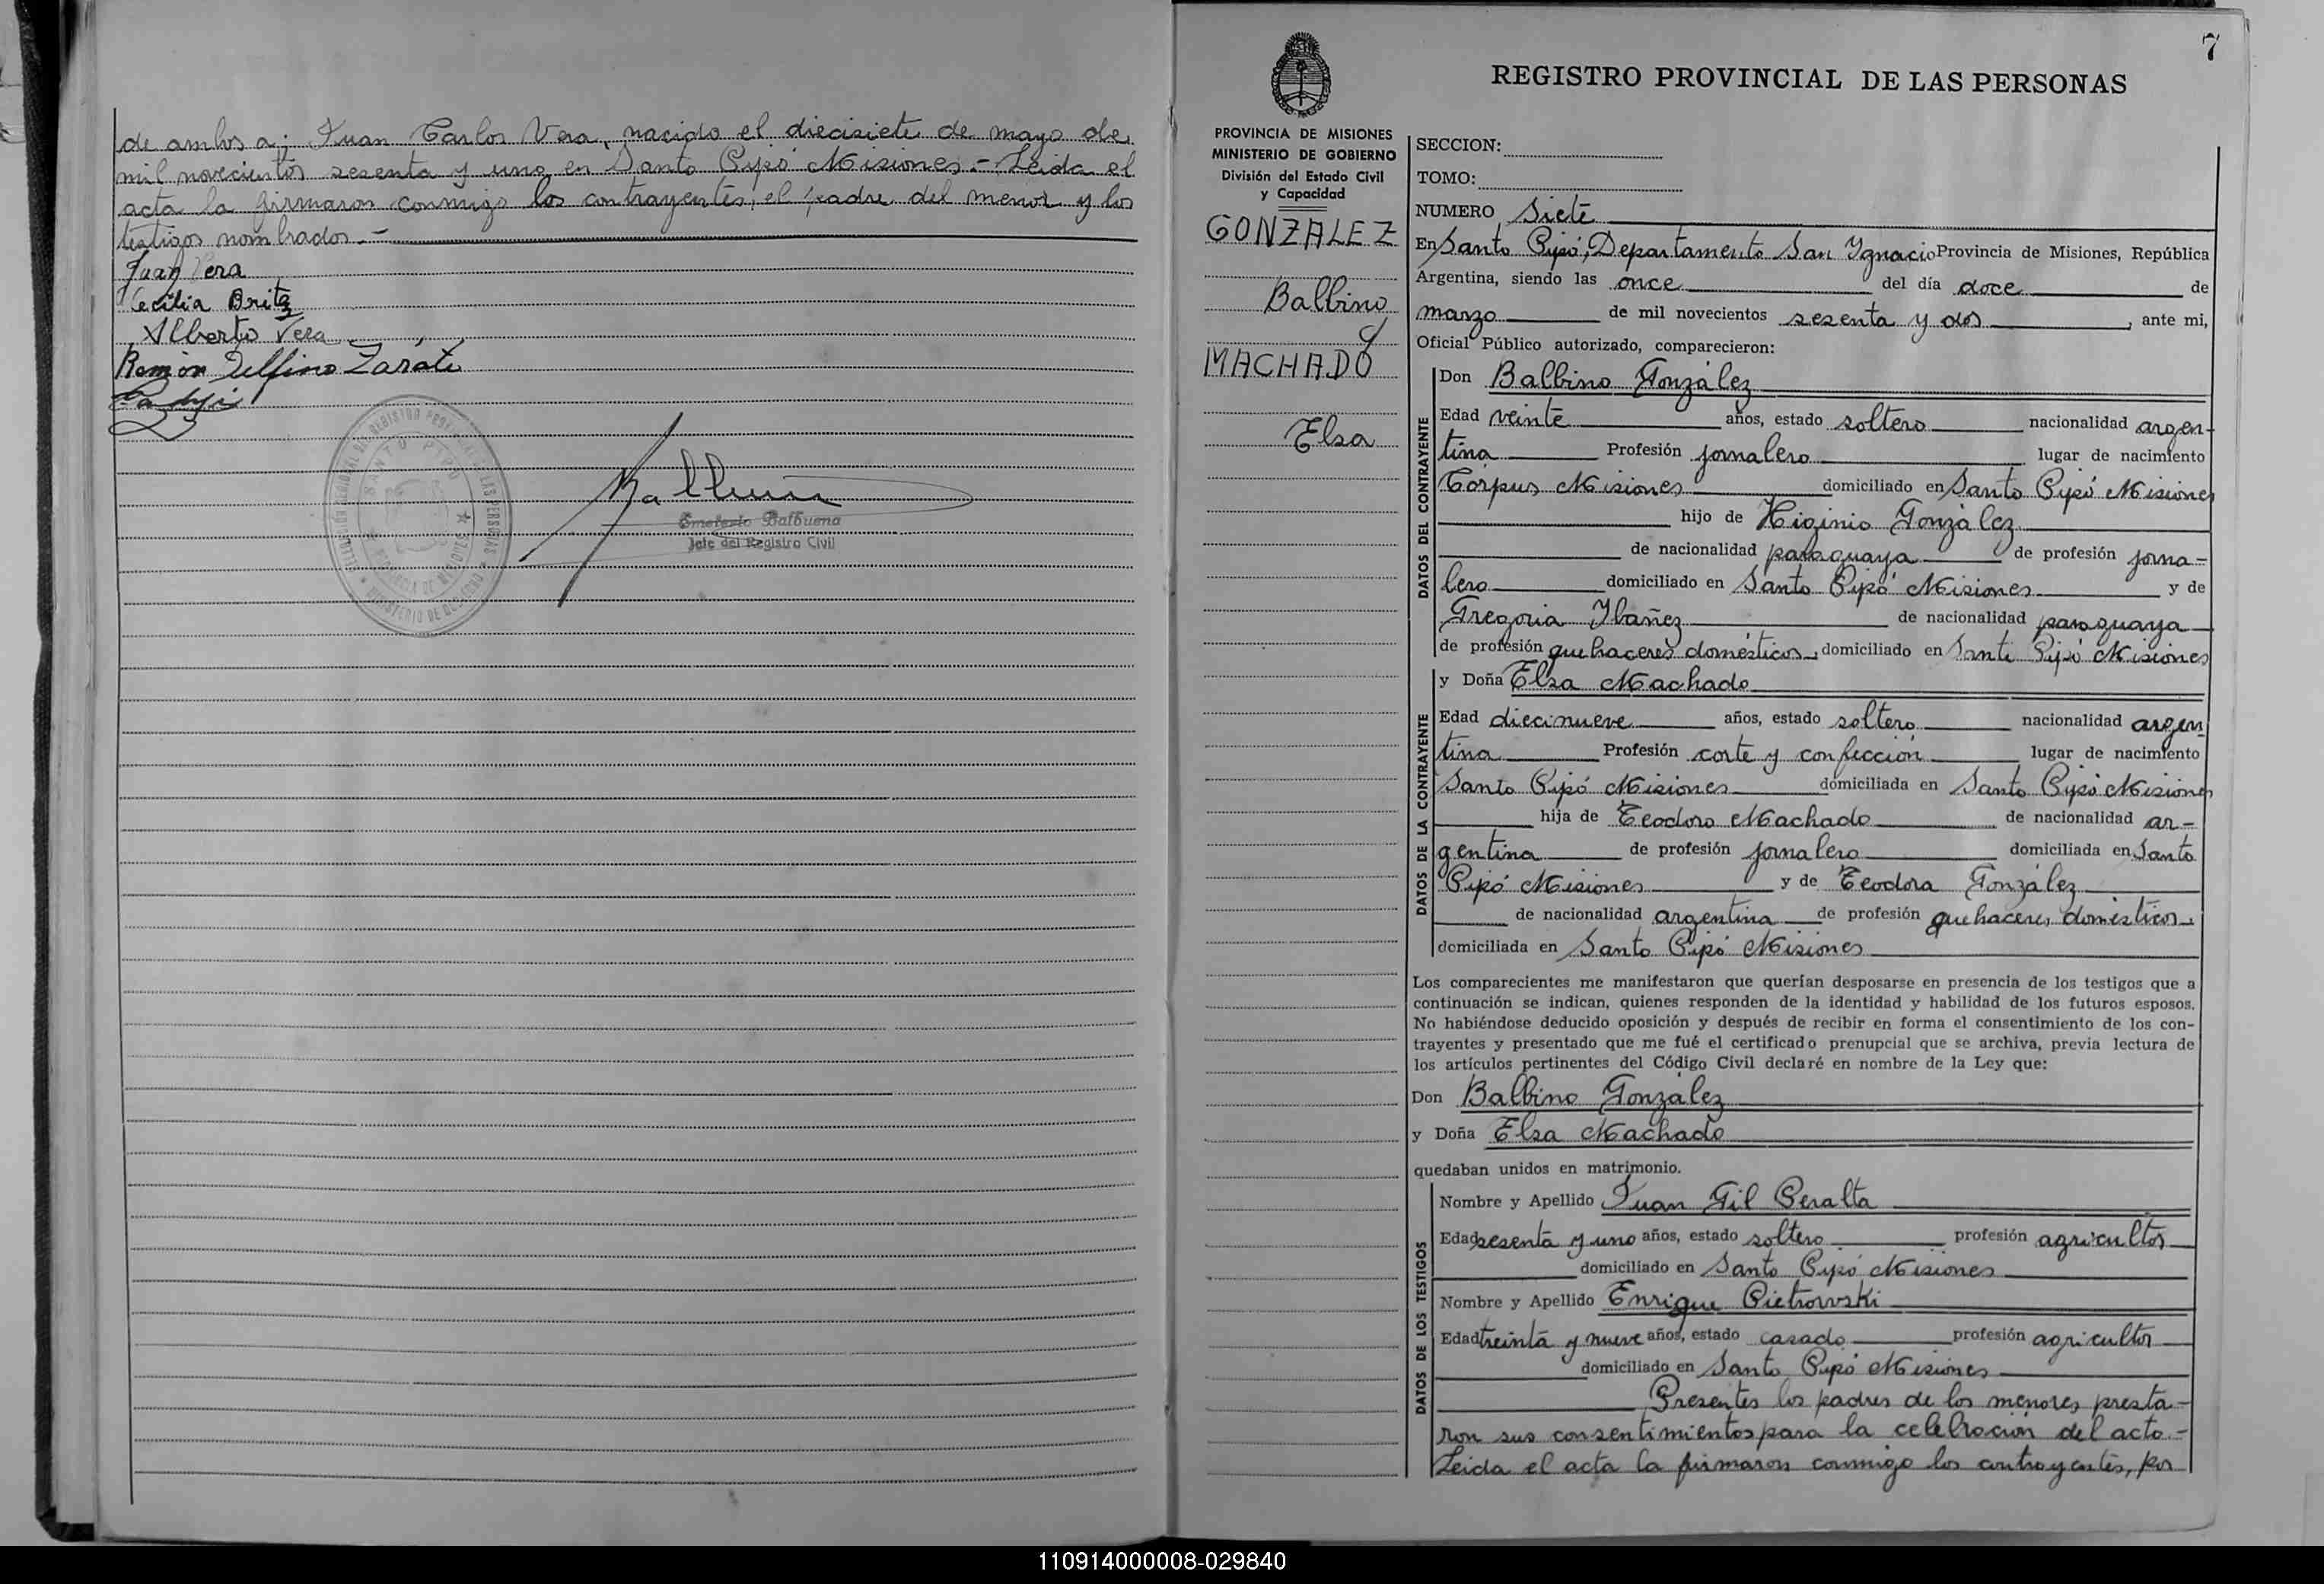 de ambos a: Juan Carlos Vera, nacido el diecisiete de mayo de
mil novecientos sesenta y uno en Santo Pipó Misiones.- Leida el
acta la firmaron conmigo los contrayentes, el padre del menor y los
testigos nombrados.-
Juan Vera
Cecilia Brítez
Alberto Vera
Ramón Delfino Zarate
SANTO PIPO
Emeterio Balbuena
Jefe del Registro Civil
7
REGISTRO PROVINCIAL DE LAS PERSONAS
PROVINCIA DE MISIONES
MINISTERIO DE GOBIERNO
División del Estado Civil
y Capacidad
GONZALEZ
Balbino
y
MACHADO
Elsa
SECCION:
TOMO:
NUMERO Siete
En Santo Pipó, Departamento San Ygnacio Provincia de Misiones, República
Argentina, siendo las once del día doce de
marzo de mil novecientos sesenta y dos, ante mi,
Oficial Público autorizado, comparecieron:
DATOS DEL CONTRAYENTE
Don Balbino González
Edad veinte años, estado soltero nacionalidad argen-
tina Profesión jornalero lugar de nacimiento
Corpus Misiones domiciliado en Santo Pipó Misiones
hijo de Higinio González
de nacionalidad paraguaya de profesión jorna-
lero domiciliado en Santo Pipó Misiones y de
Gregoria Ybañez de nacionalidad paraguaya
de profesión quehaceres domésticos, domiciliado en Santo Pipó Misiones
DATOS DE LA CONTRAYENTE
y Doña Elsa Machado
Edad diecinueve años, estado soltero nacionalidad argen
tina Profesión corte y confección lugar de nacimiento
Santo Pipó Misiones domiciliada en Santo Pipó Misiones
hija de Teodoro Machado de nacionalidad ar-
gentina de profesión jornalero domiciliada en Santo
Pipó Misiones y de Teodora González
de nacionalidad argentina de profesión quehaceres domésticos,
domiciliada en Santo Pipó Misiones
Los comparecientes me manifestaron que querían desposarse en presencia de los testigos que a
continuación se indican, quienes responden de la identidad y habilidad de los futuros esposos.
No habiéndose deducido oposición y después de recibir en forma el consentimiento de los con-
trayentes y presentado que me fué el certificado prenupcial que se archiva, previa lectura de
los artículos pertinentes del Código Civil declaré en nombre de la Ley que:
Don Balbino González
y Doña Elsa Machado
quedaban unidos en matrimonio.
DATOS DE LOS TESTIGOS
Nombre y Apellido Juan Gil Peralta
Edad sesenta y uno años, estado soltero profesión agricultor
domiciliado en Santo Pipó Misiones
Nombre y Apellido Enrique Pietrowski
Edad treinta y nueve años, estado casado profesión agricultor
domiciliado en Santo Pipó Misiones
Presentes los padres de los menores, presta-
ron sus consentimientos para la celebración del acto.-
Leida el acta la firmaron conmigo los contrayentes, por
110914000008-029840